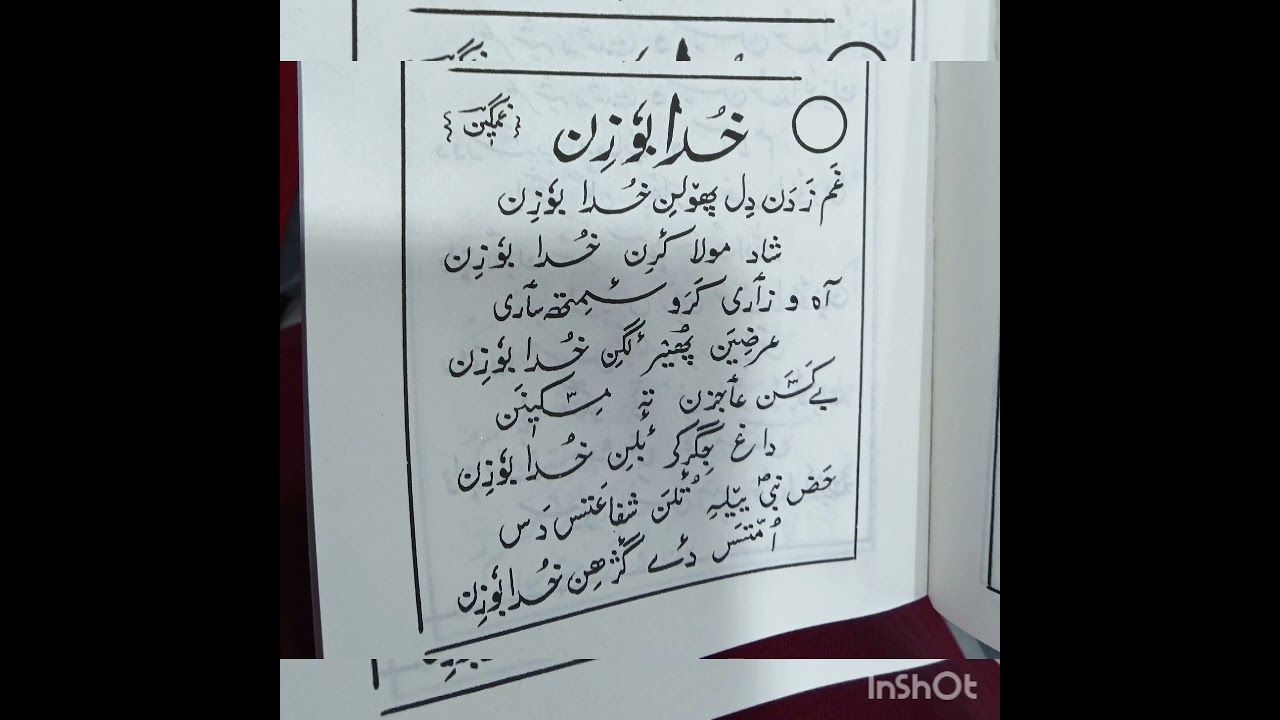 خُدا بوٗزِن
{غمگیٖن}
غَم زَدَن دِل پھۆلِن خُدا بوٗزِن
شاد مولا کٔرِن خُدا بوٗزِن
آہ و زٲری کَرَو سٔمِتھ سٲری
عرضِیَن پھُٹیٚر لٔگِن خُدا بوٗزِن
بے کَسَن عٲجِزن تہٕ مِسکیٖنَن
داغ جِگرٕکۍ بٔلِن خُدا بوٗزِن
حَض نبیؐ ییٚلہِ تُلَن شفاعَتَس دَس
اُمّتَس دۓ گژھِن خُدا بوٗزِن
InShOt